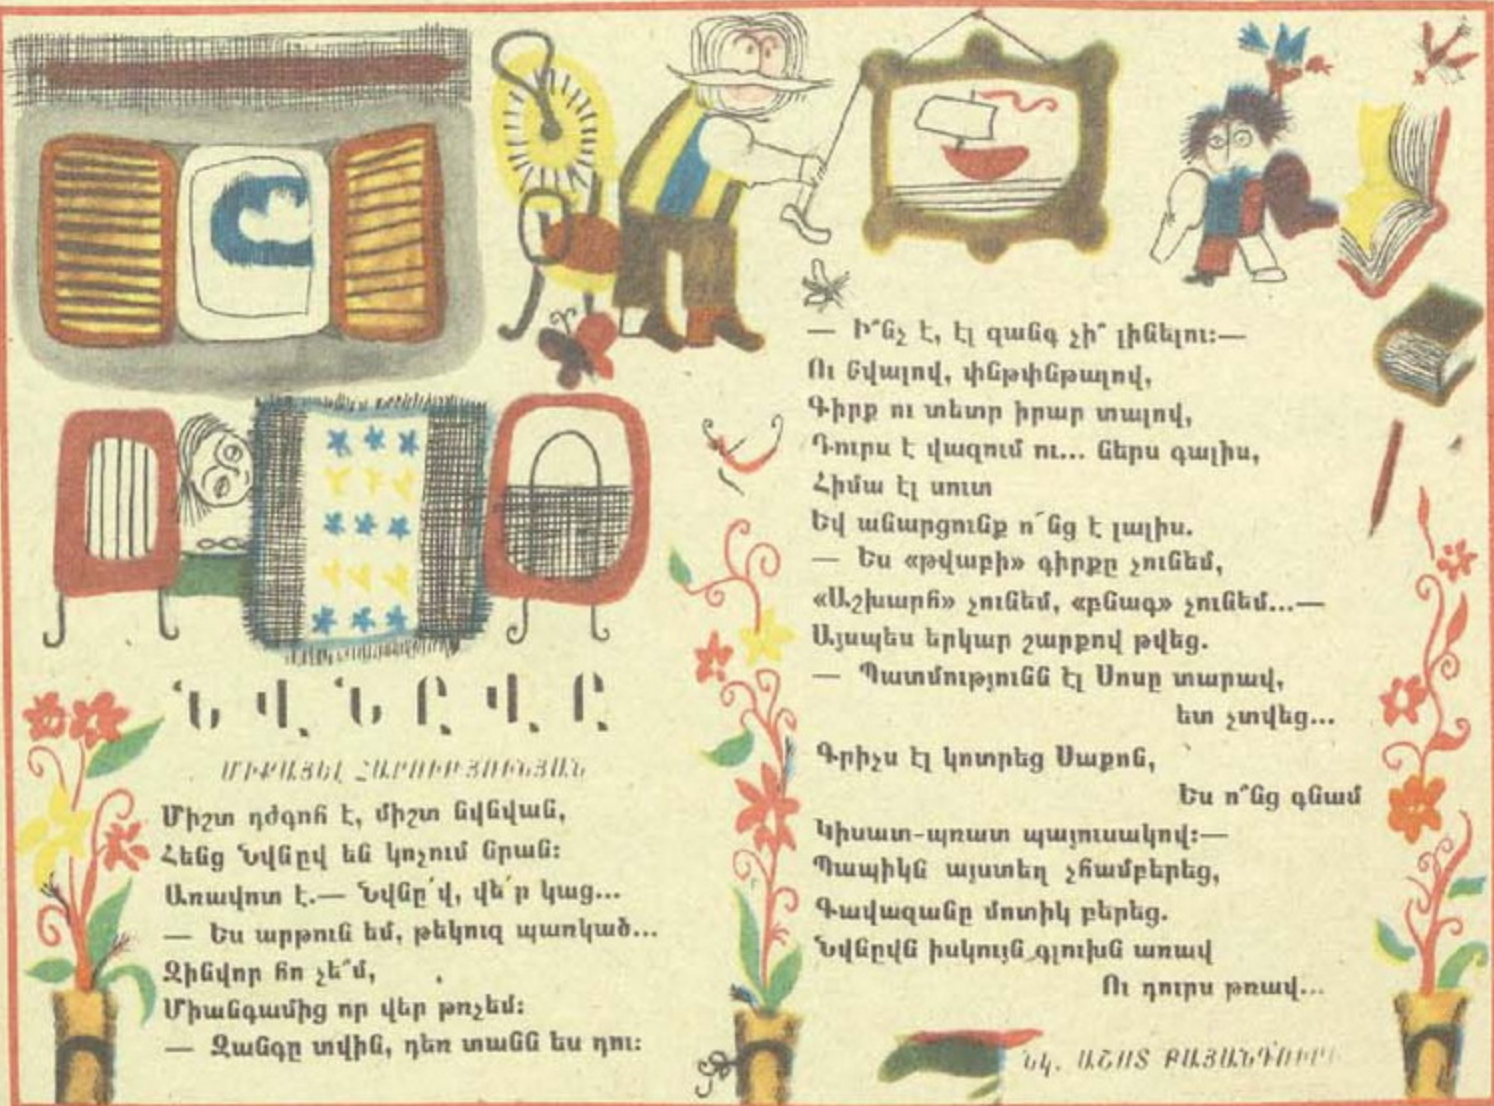 ՆՎՆԸՎԸ
ՄԻՔԱՅԵԼ ՀԱՐՈՒԹՅՈՒՆՅԱՆ
Միշտ դժգոհ է, միշտ նվնվան,
Հենց Նվնըվ են կոչում նրան։
Առավոտ է.— Նվնը՛վ, վե՛ր կաց...
— Ես արթուն եմ, թեկուզ պառկած...
Զինվոր հո չե՞մ,
Միանգամից որ վեր թռչեմ։
— Զանգը տվին, դեռ տանն ես դու։
— Ի՞նչ է, էլ զանգ չի՞ լինելու։—
Ու նվալով, փնթփնթալով,
Գիրք ու տետր իրար տալով,
Դուրս է վազում ու... ներս գալիս,
Հիմա էլ սուտ
Եվ անարցունք ո՜նց է լալիս.
— Ես «թվաբի» գիրքը չունեմ,
«Աշխարհ» չունեմ, «բնագ» չունեմ...—
Այսպես երկար շարքով թվեց.
— Պատմությունն էլ Սոսը տարավ,
ետ չտվեց...
Գրիչս էլ կոտրեց Սաքոն,
Ես ո՞նց գնամ
Կիսատ-պռատ պայուսակով։—
Պապիկն այստեղ չհամբերեց,
Գավազանը մոտիկ բերեց.
Նվնըվն իսկույն գլուխն առավ
Ու դուրս թռավ...
Նկ. ԱՇՈՏ ԲԱՅԱՆԴՈՒՐԻ